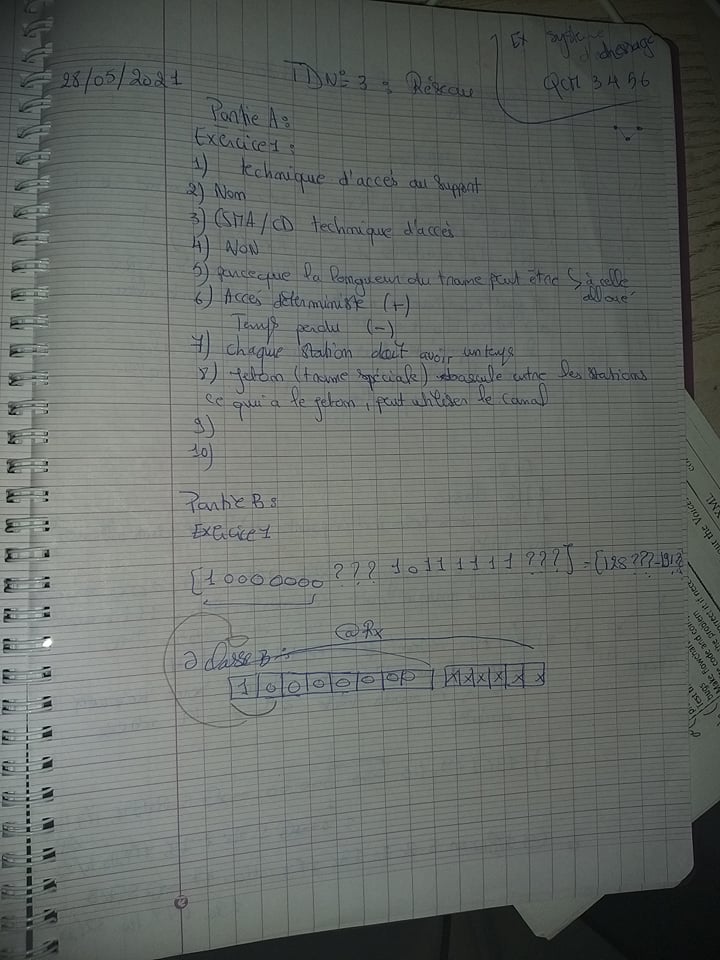 Ex système
d'adressage
QCM 3 4 5 6
28/05/2021
TD N° 3 : Réseau
Partie A :
Exercice 1 :
1) technique d'accés au support
2) Nom
3) CSMA/CD technique d'accés
4) NON
5) parceque la longueur du trame peut être > à celle
alloué
6) Accés déterministe (+)
Temps perdu (-)
7) chaque station doit avoir un temps
8) jeton (trame spéciale) bascule entre les stations
ce qui a le jeton, peut utiliser le canal
9)
10)
Partie B :
Exercice 1
[10000000 ??? 10111111 ???] = [128 ??? - 191 ?
@Rx
2 Classe B :
1 0 0 0 0 0 0 0 x x x x x x